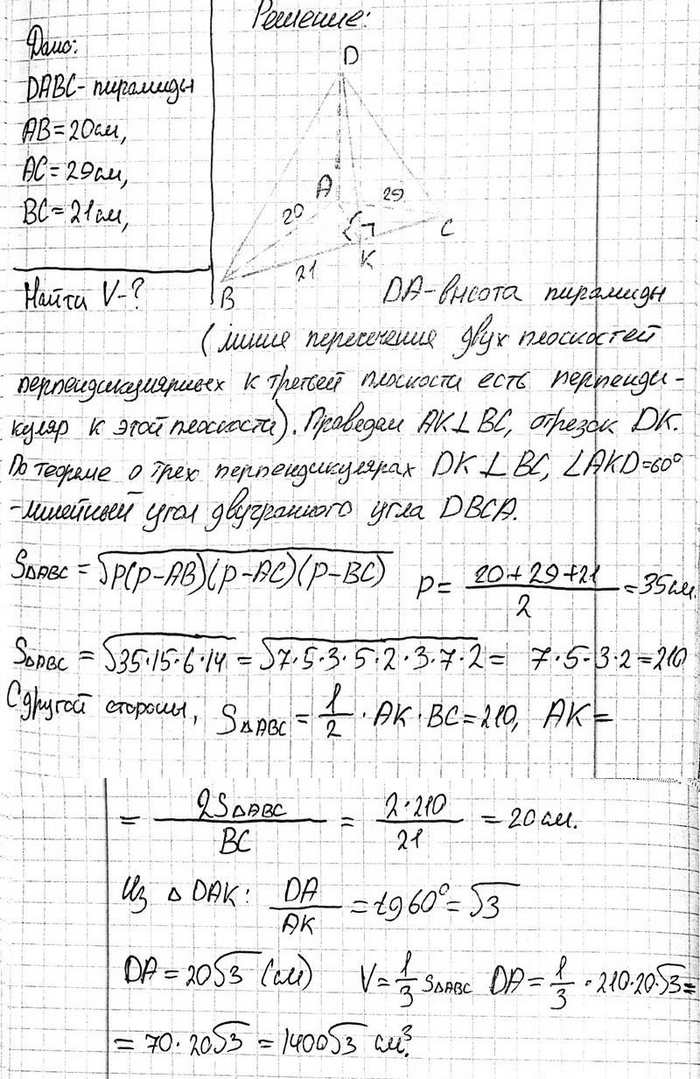 Решение:
Дано:
DABC - пирамиды
AB = 20 см,
AC = 29 см,
BC = 21 см,
Найти V - ?
D
A
20
29
C
K
21
B
DA - высота пирамиды
(линие пересечения двух плоскостей
перпендикулярных к третьей плоскости есть перпенди-
куляр к этой плоскости). Проведем AK ⊥ BC, отрезок DK.
По теореме о трех перпендикулярах DK ⊥ BC, ∠AKD = 60°
- линейный угол двугранного угла DBCA.
S△ABC = √P(P-AB)(P-AC)(P-BC) P = (20+29+21)/2 = 35 см.
S△ABC = √35·15·6·14 = √7·5·3·5·2·3·7·2 = 7·5·3·2 = 210
С другой стороны, S△ABC = 1/2 · AK · BC = 210, AK =
= 2S△ABC/BC = 2·210/21 = 20 см.
Из △ DAK: DA/AK = tg 60° = √3
DA = 20√3 (см) V = 1/3 S△ABC DA = 1/3 · 210·20·√3 =
= 70·20√3 = 1400√3 см³.